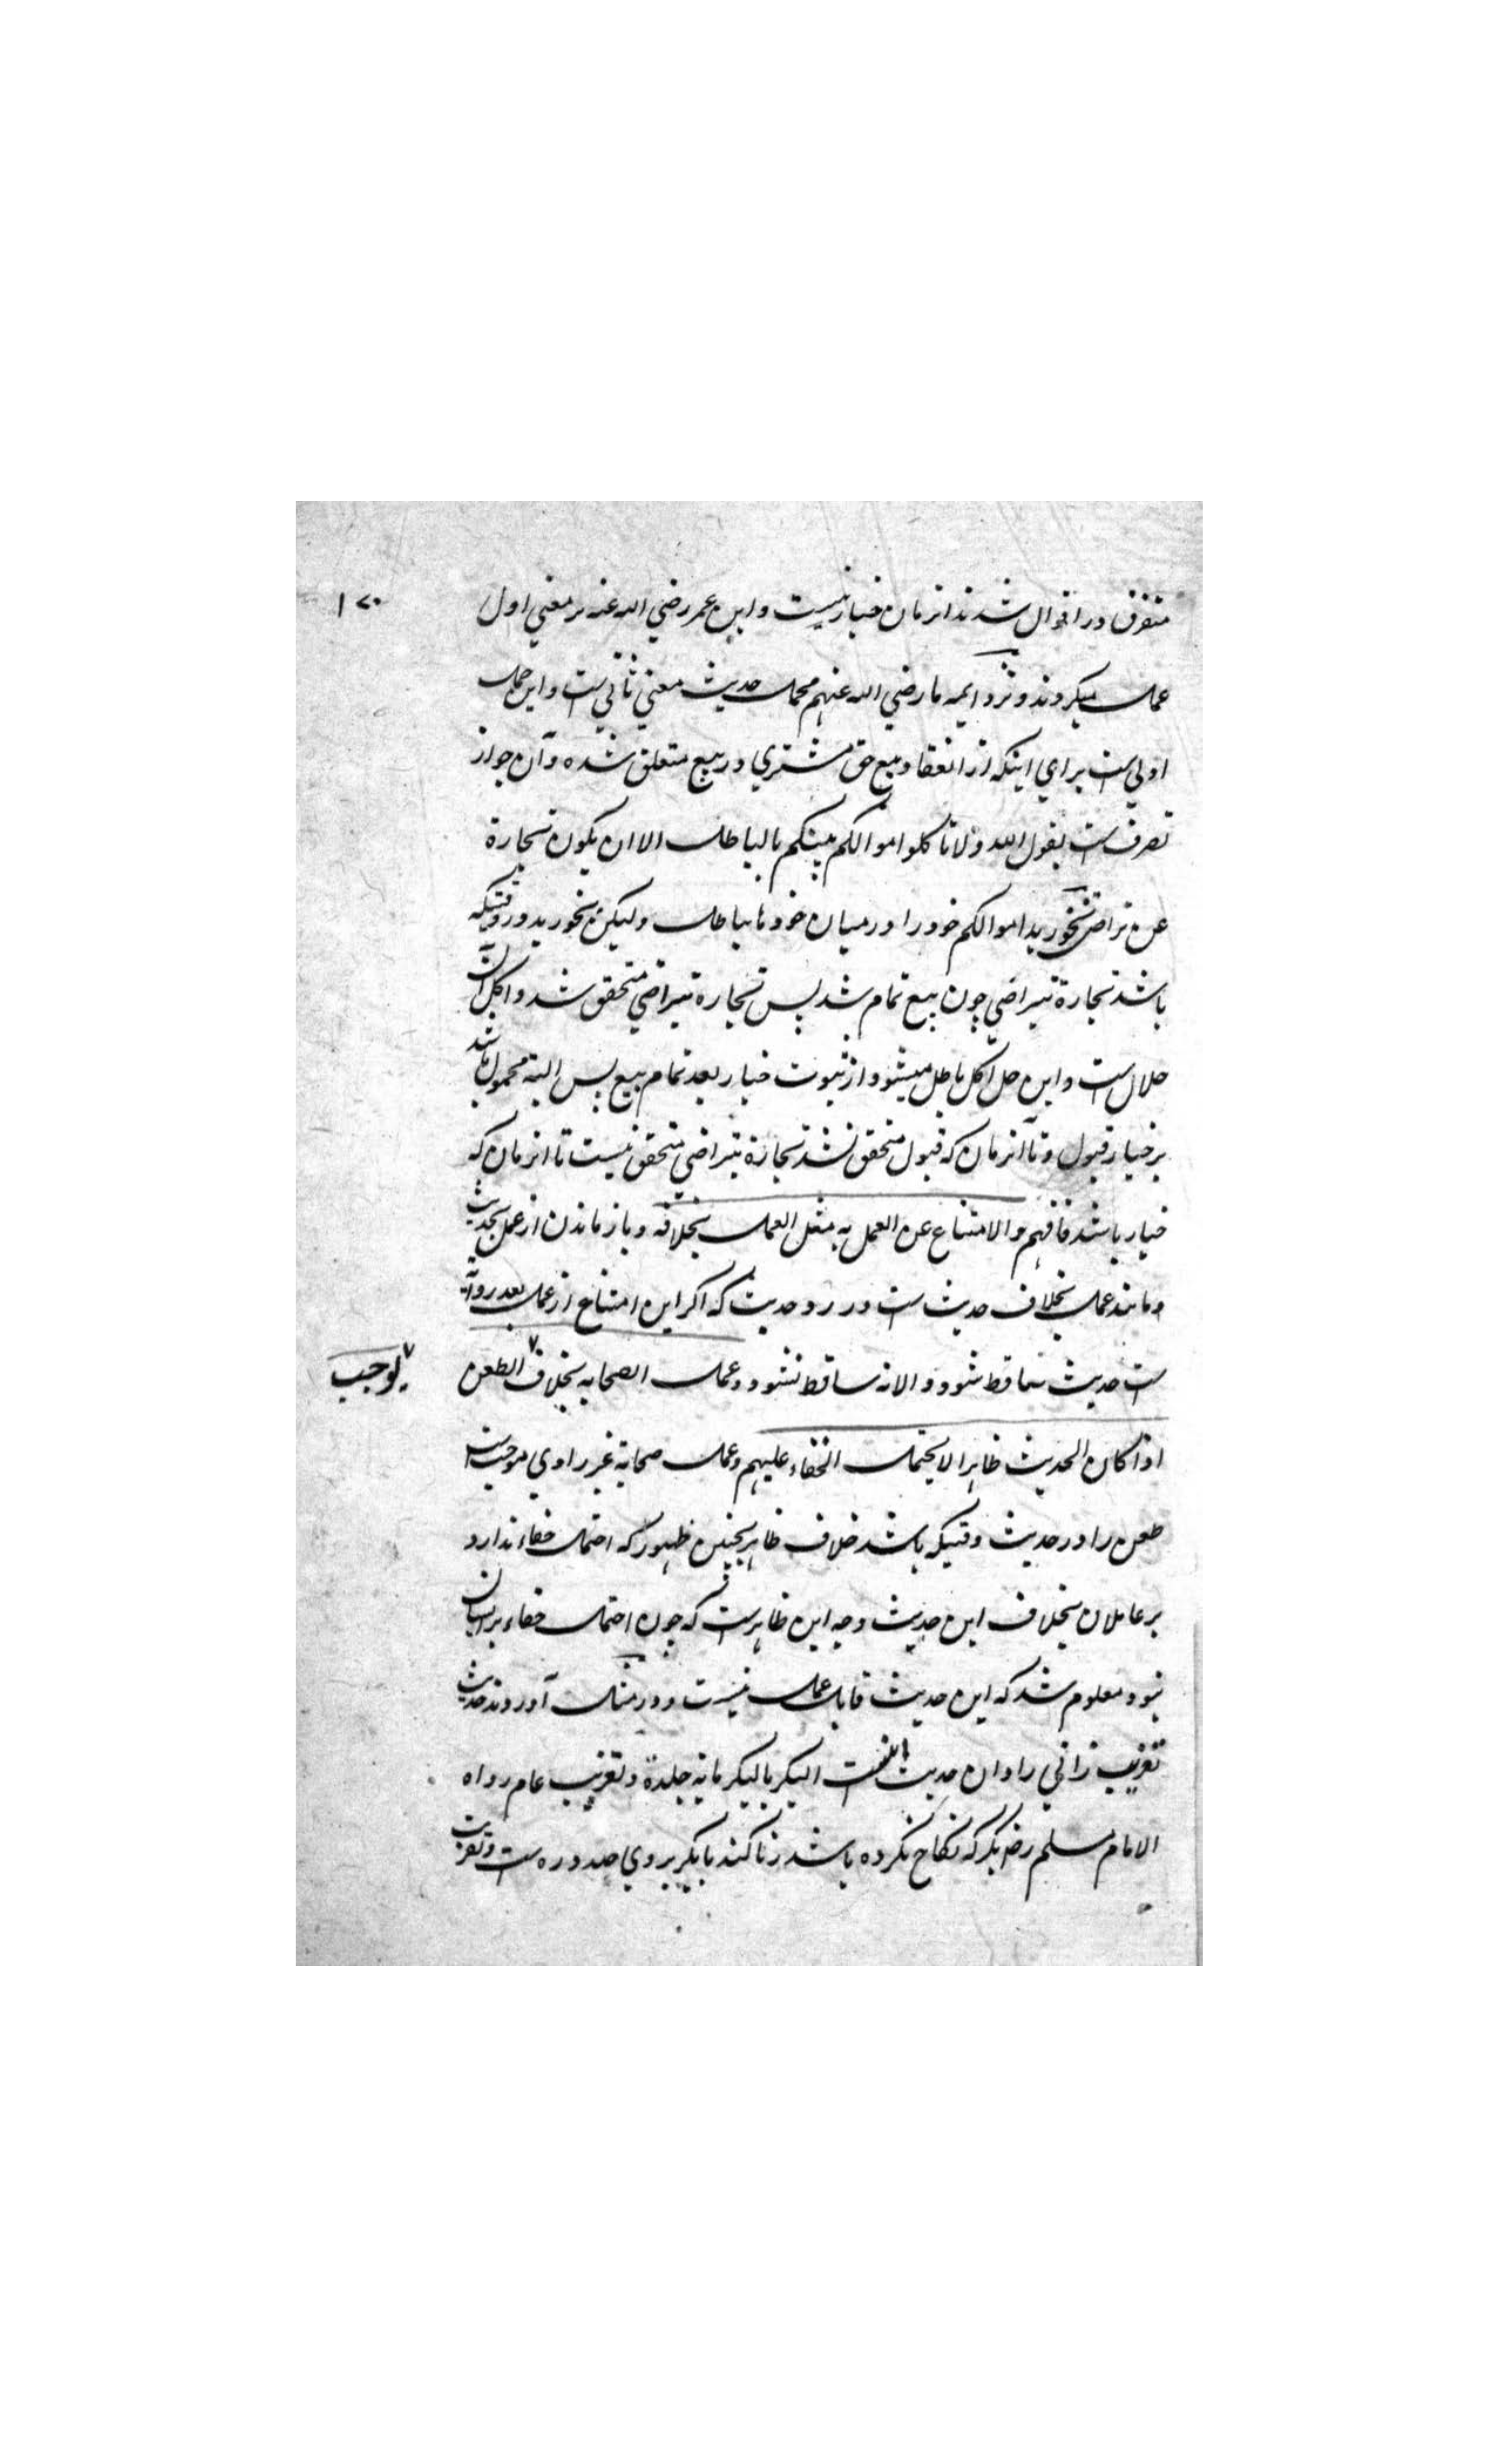 ۱۷۰
متفرق در اقوال شدند از زمان خیار نیست و ابن عمر رضي الله عنه بر معني اول
عمل میکردند و نزد ایمه ما رضي الله عنهم محمل حدیث معني ثاني ست و این حمل
اولي ست براي اینکه از انعقاد بیع حق مشتري در بیع متعلق شده و آن جواز
تصرف ست بقول الله و لا تاکلوا اموالکم بینکم بالباطل الا ان یکون تجارة
عن تراض نخورید اموالکم خود را درمیان خودها بباطل ولیکن بخورید در وقتیکه
باشد تجارة بتراضي چون بیع تمام شد پس تجارة بتراضي متحقق شد و اکل آن
حلال ست و این حل اکل باطل میشود از ثبوت خیار بعد تمام بیع پس البته محمول باشد
بر خیار قبول و تا آنزمان که قبول متحقق نشد تجارة بتراضي متحقق نیست تا انزمان که
خیار باشد فافهم والامتناع عن العمل به مثل العمل بخلافه و باز ماندن از عمل بحدیث
و مانند عمل بخلاف حدیث ست در رد حدیث که اکر این امتناع از عمل بعد روایة
ست حدیث ساقط شود و الا نه ساقط نشود و عمل الصحابه بخلافه الطعن
یوجب
اذا کان الحدیث ظاهرا لا یحتمل الخفاء علیهم و عمل صحابة غیر راوي موجب ست
طعن را در حدیث وقتیکه باشد خلاف ظاهر بچنین ظهور که احتمال خفاء ندارد
بر عاملان بخلاف این حدیث وجه این ظاهرست که چون احتمال خفاء بر ایشان
نبود معلوم شد که این حدیث قابل عمل نیست و در مثال آوردند حدیث
تغریب زاني را و ان حدیث اینست البکر بالبکر مایة جلدة و تغریب عام رواه
الامام مسلم رضـ بکر که نکاح نکرده باشد زنا کند با بکر بروي صد دره ست و تغریب